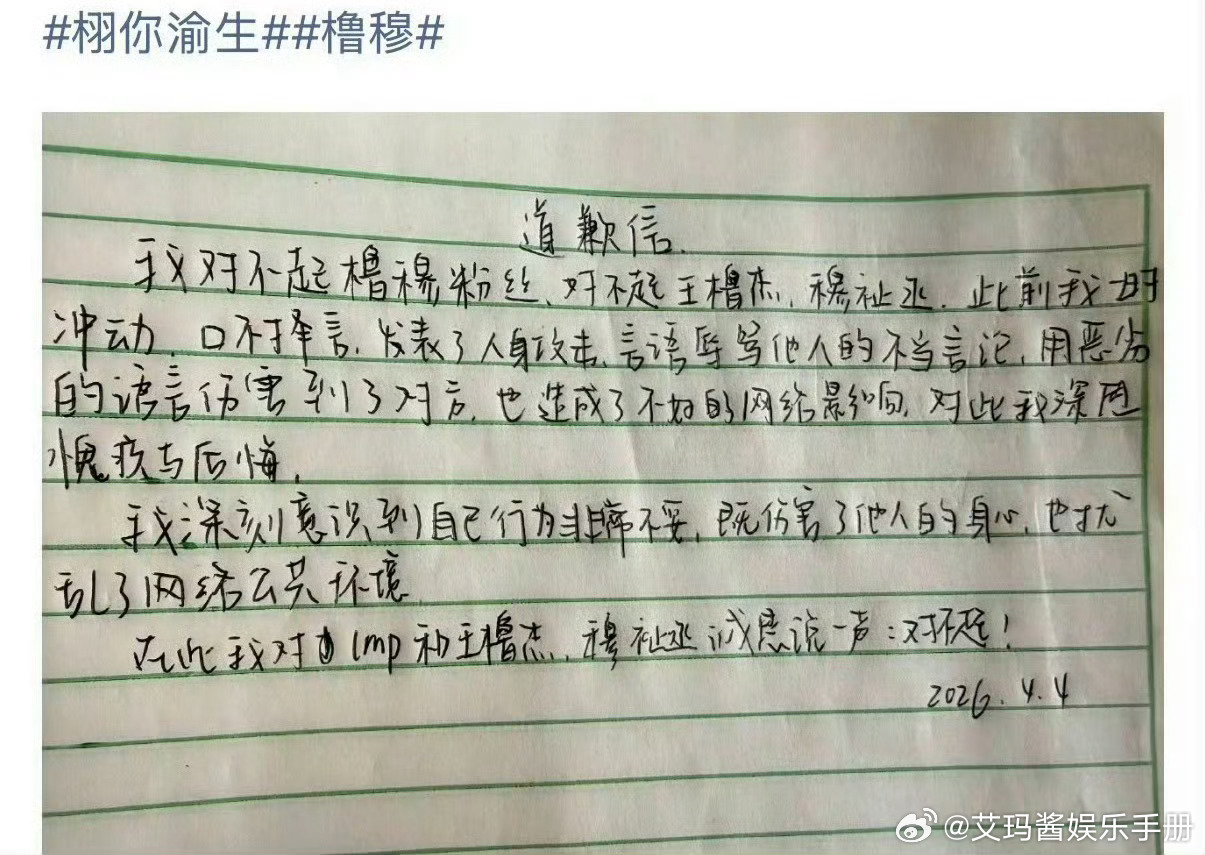 #栩你渝生##橹穆#
道歉信.
我对不起橹穆粉丝、对不起王橹杰、穆祉丞.此前我一时
冲动、口不择言,发表了人身攻击、言语辱骂他人的不当言论,用恶劣
的语言伤害到了对方,也造成了不好的网络影响,对此我深感
愧疚与后悔.
我深刻意识到自己行为非常不妥,既伤害了他人的身心,也扰
乱了网络公共环境.
在此我对 lmp和王橹杰、穆祉丞诚恳说一声:对不起!
2026.4.4
@艾玛酱娱乐手册